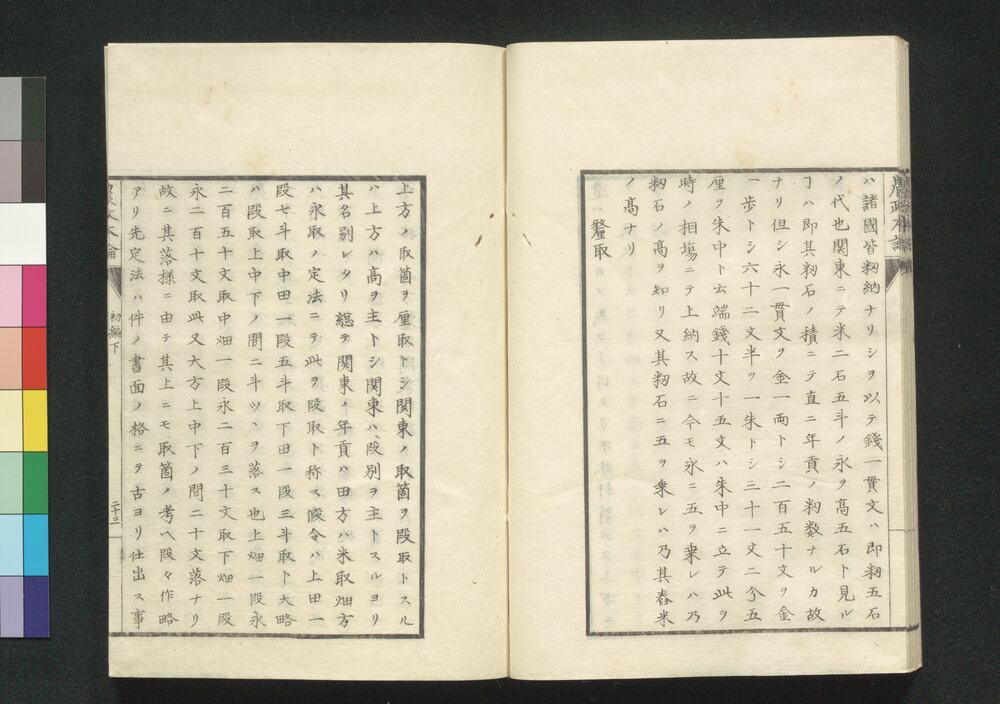 ハ諸國皆籾納ナリシヲ以テ錢一貫文ハ即籾五石
ノ代也関東ニテ米二石五斗ノ永ヲ髙五石ト見ル
ヿハ即其籾石ノ積ニテ直ニ年貢ノ籾数ナルカ故
ナリ但シ永一貫文ヲ金一両トシ二百五十文ヲ金
一歩トシ六十二文半ヲ一朱トシ三十一文二分五
厘ヲ朱中ト云端錢十文十五文ハ朱中ニ立テ此ヲ
時ノ相塲ニテ上納ス故ニ今モ永ニ五ヲ乗レハ乃
籾石ノ髙ヲ知リ又其籾石ニ五ヲ乗レハ乃其舂米
ノ髙ナリ
釐取
上方ノ取箇ヲ厘取トシ関東ノ取箇ヲ段取トスル
ハ上方ハ髙ヲ主トシ関東ハ段別ヲ主トスルヨリ
其名別レタリ総テ関東ノ年貢ハ田方ハ米取畑方
ハ永取ノ定法ニテ此ヲ段取ト称ス假令ハ上田一
段七斗取中田一段五斗取下田一段三斗取ト大略
ハ段取上中下ノ間ニ斗ツヽヲ落ス也上畑一段永
二百五十文取中畑一段永二百三十文取下畑一段
永二百十文取此又大方上中下ノ間二十文落ナリ
故ニ其落様ニ由テ其上ニモ取箇ノ考ヘ段々作略
アリ先定法ハ件ノ書面ノ格ニテ古ヨリ仕出ス事
初編下
二十三